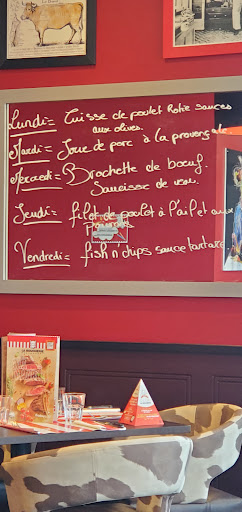 Lundi = Cuisse de poulet Rotie sauces
aux olives.
Mardi = Joue de porc à la provençale
Mercredi = Brochette de bœuf.
Saucisse de veau.
Jeudi = filet de poulet à l'ail et aux
Vendredi = fish n'chips sauce tartare